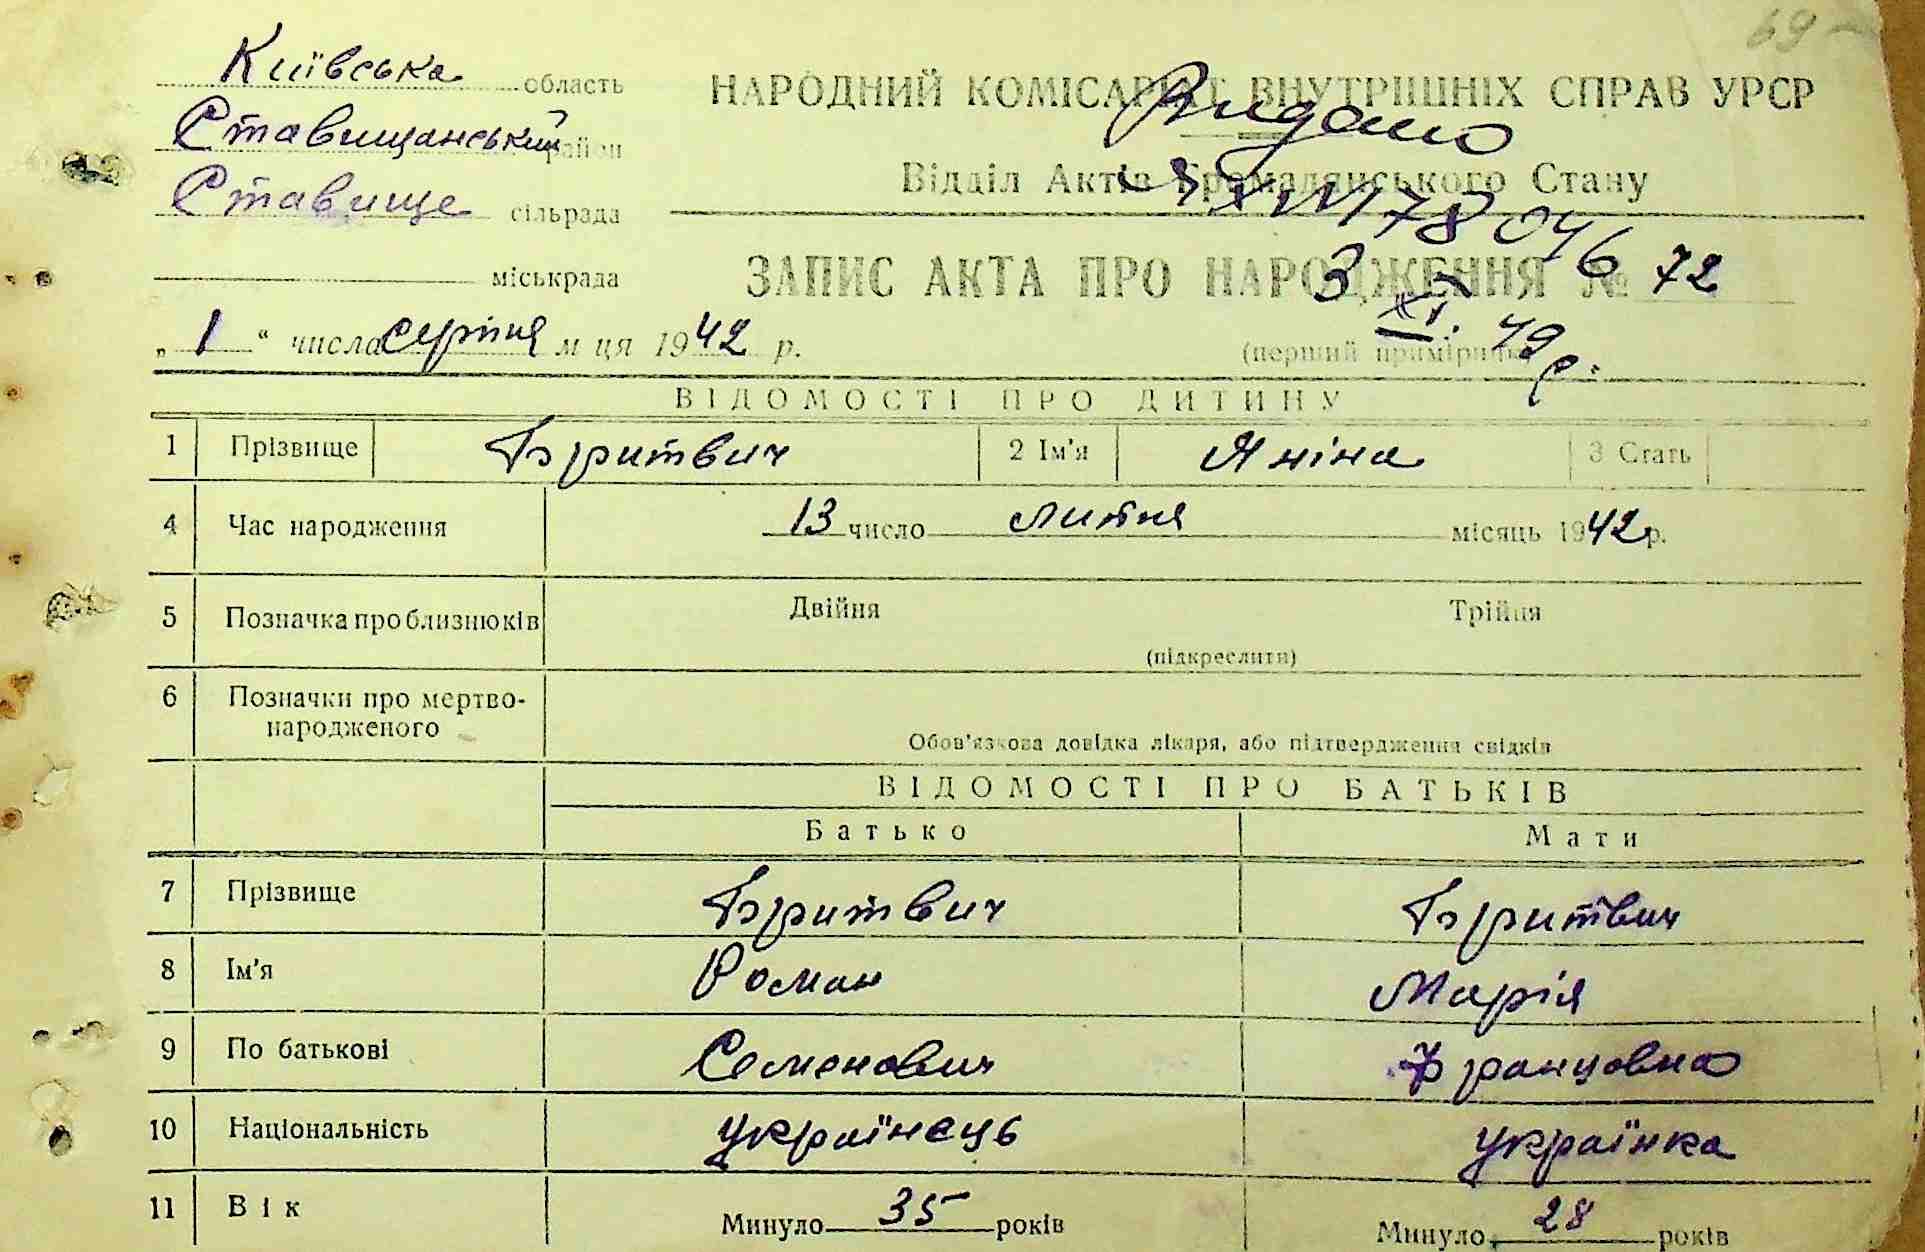 69
Київська область
НАРОДНИЙ КОМІСАРІАТ ВНУТРІШНІХ СПРАВ УРСР
Видано
Ставищанський район
Відділ Актів Громадянського Стану
Ставище сільрада
178046
міськрада
ЗАПИС АКТА ПРО НАРОДЖЕННЯ № 72
3 XI. 49 р.
„ 1 “ числа серпня м ця 1942 р.
(перший примірник)
ВІДОМОСТІ ПРО ДИТИНУ
1 Прізвище Бритвич 2 Ім'я Яніна 3 Стать
4 Час народження 13 число липня місяць 1942 р.
5 Позначка про близнюків Двійня Трійня
(підкреслити)
6 Позначки про мертво-
народженого
Обов'язкова довідка лікаря, або підтвердження свідків
ВІДОМОСТІ ПРО БАТЬКІВ
Батько Мати
7 Прізвище Бритвич Бритвич
8 Ім'я Роман Марія
9 По батькові Семенович Францовна
10 Національність українець українка
11 Вік Минуло 35 років Минуло 28 років